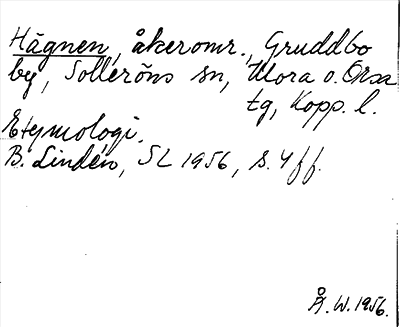 Hägnen, åkeromr., Gruddbo
by, Solleröns sn, Mora o. Orsa
tg, Kopp. l.
Etymologi.
B. Lindén, SL 1956, s. 4 ff.
Å. W. 1956.